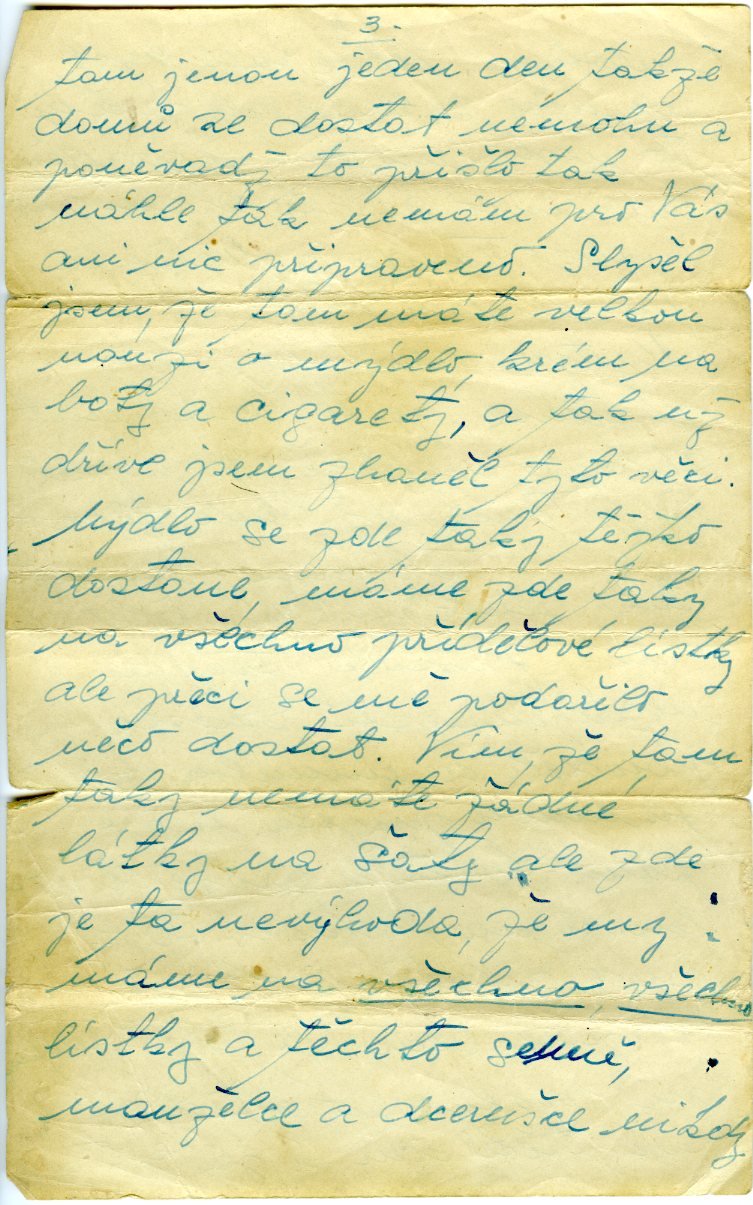 3.
tam jenom jeden den takže
domů se dostat nemohu a
poněvadž to přišlo tak
náhle tak nemám pro Vás
ani nic připraveno. Slyšel
jsem, že tam máte velkou
nouzi o mýdlo, krém na
boty a cigarety, a tak už
dříve jsem zhaněl tyto věci.
Mýdlo se zde taky těžko
dostane, máme zde taky
na všechno přídělové lístky
ale přeci se mě podařilo
něco dostat. Vím, že tam
taky nemáte žádné
látky na šaty ale zde
je ta nevýhoda, že my
máme na všechno, všechno
lístky a těchto se mě,
manželce a dcerušce nikdy